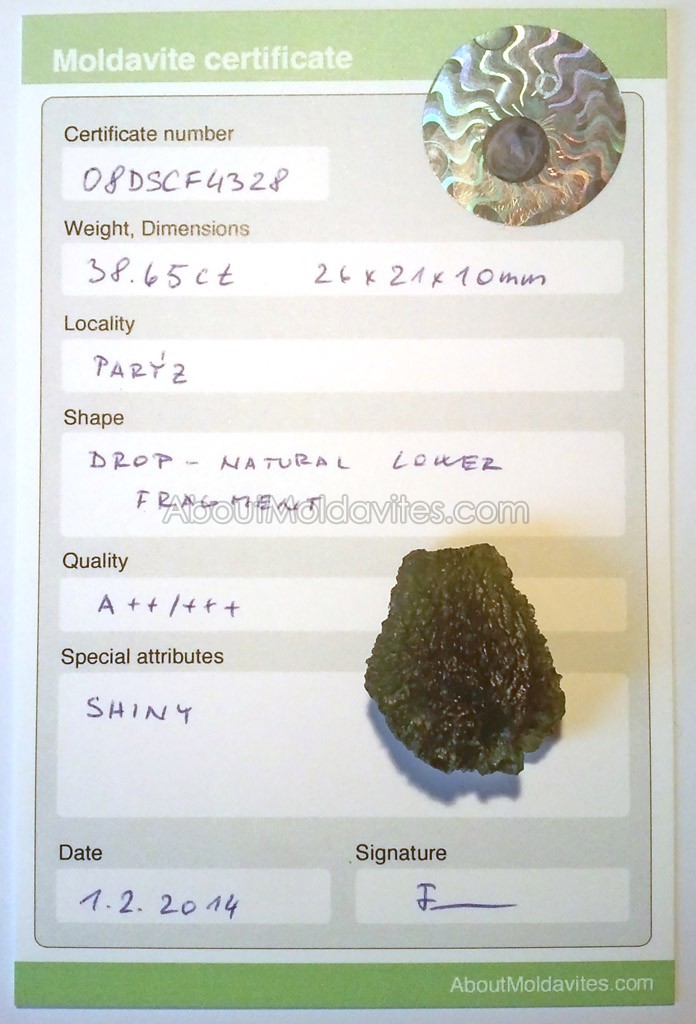 Moldavite certificate
Certificate number
08DSCF4328
Weight, Dimensions
38.65ct 26x21x10mm
Locality
PARÝZ
Shape
DROP - NATURAL LOWER
FRAGMENT
AboutMoldavites.com
Quality
A++/+++
Special attributes
SHINY
Date
Signature
1.2.2014
AboutMoldavites.com